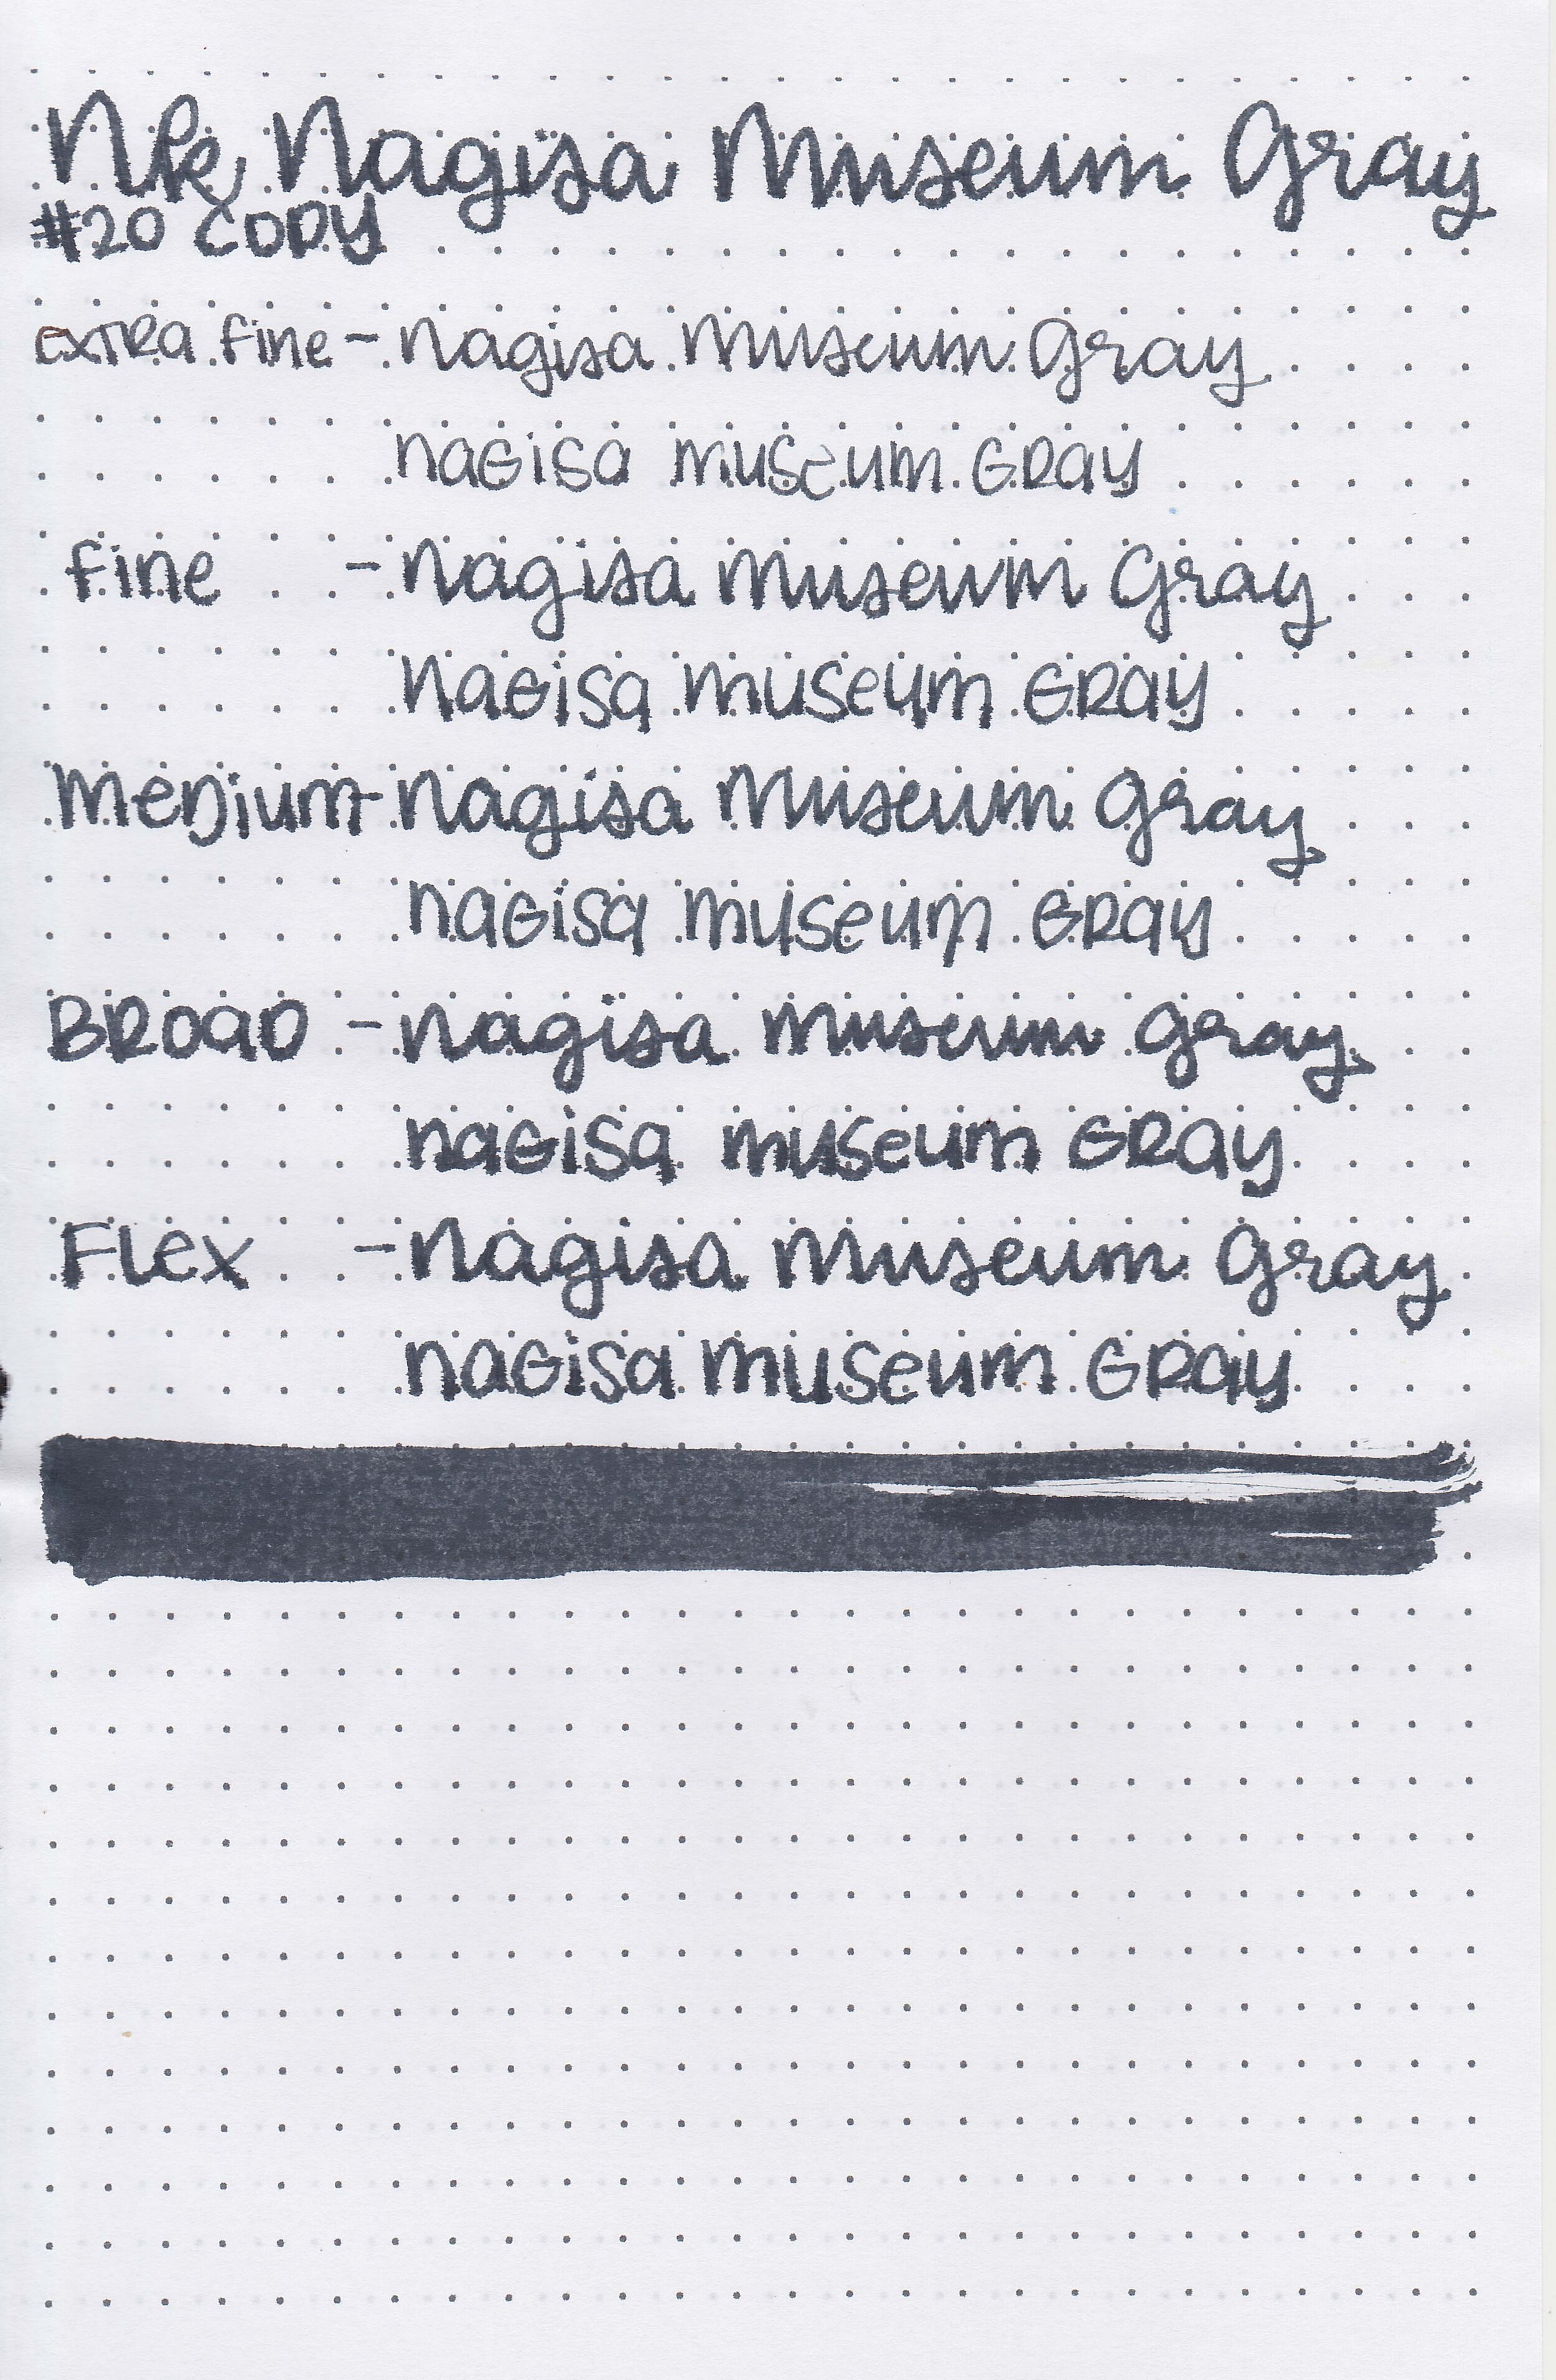 Nk Nagisa Museum Gray
#20 COPY
EXTRA fine - Nagisa Museum Gray
NAGiSa MUSeUM GRAY
fine - Nagisa Museum Gray
NAGiSa MUSeUM GRAY
MEDium - Nagisa Museum Gray
NAGiSa MUSeUM GRAY
BROAD - Nagisa Museum Gray
NAGiSa MUSeUM GRAY
FLeX - Nagisa Museum Gray
NAGiSa MUSeUM GRAY